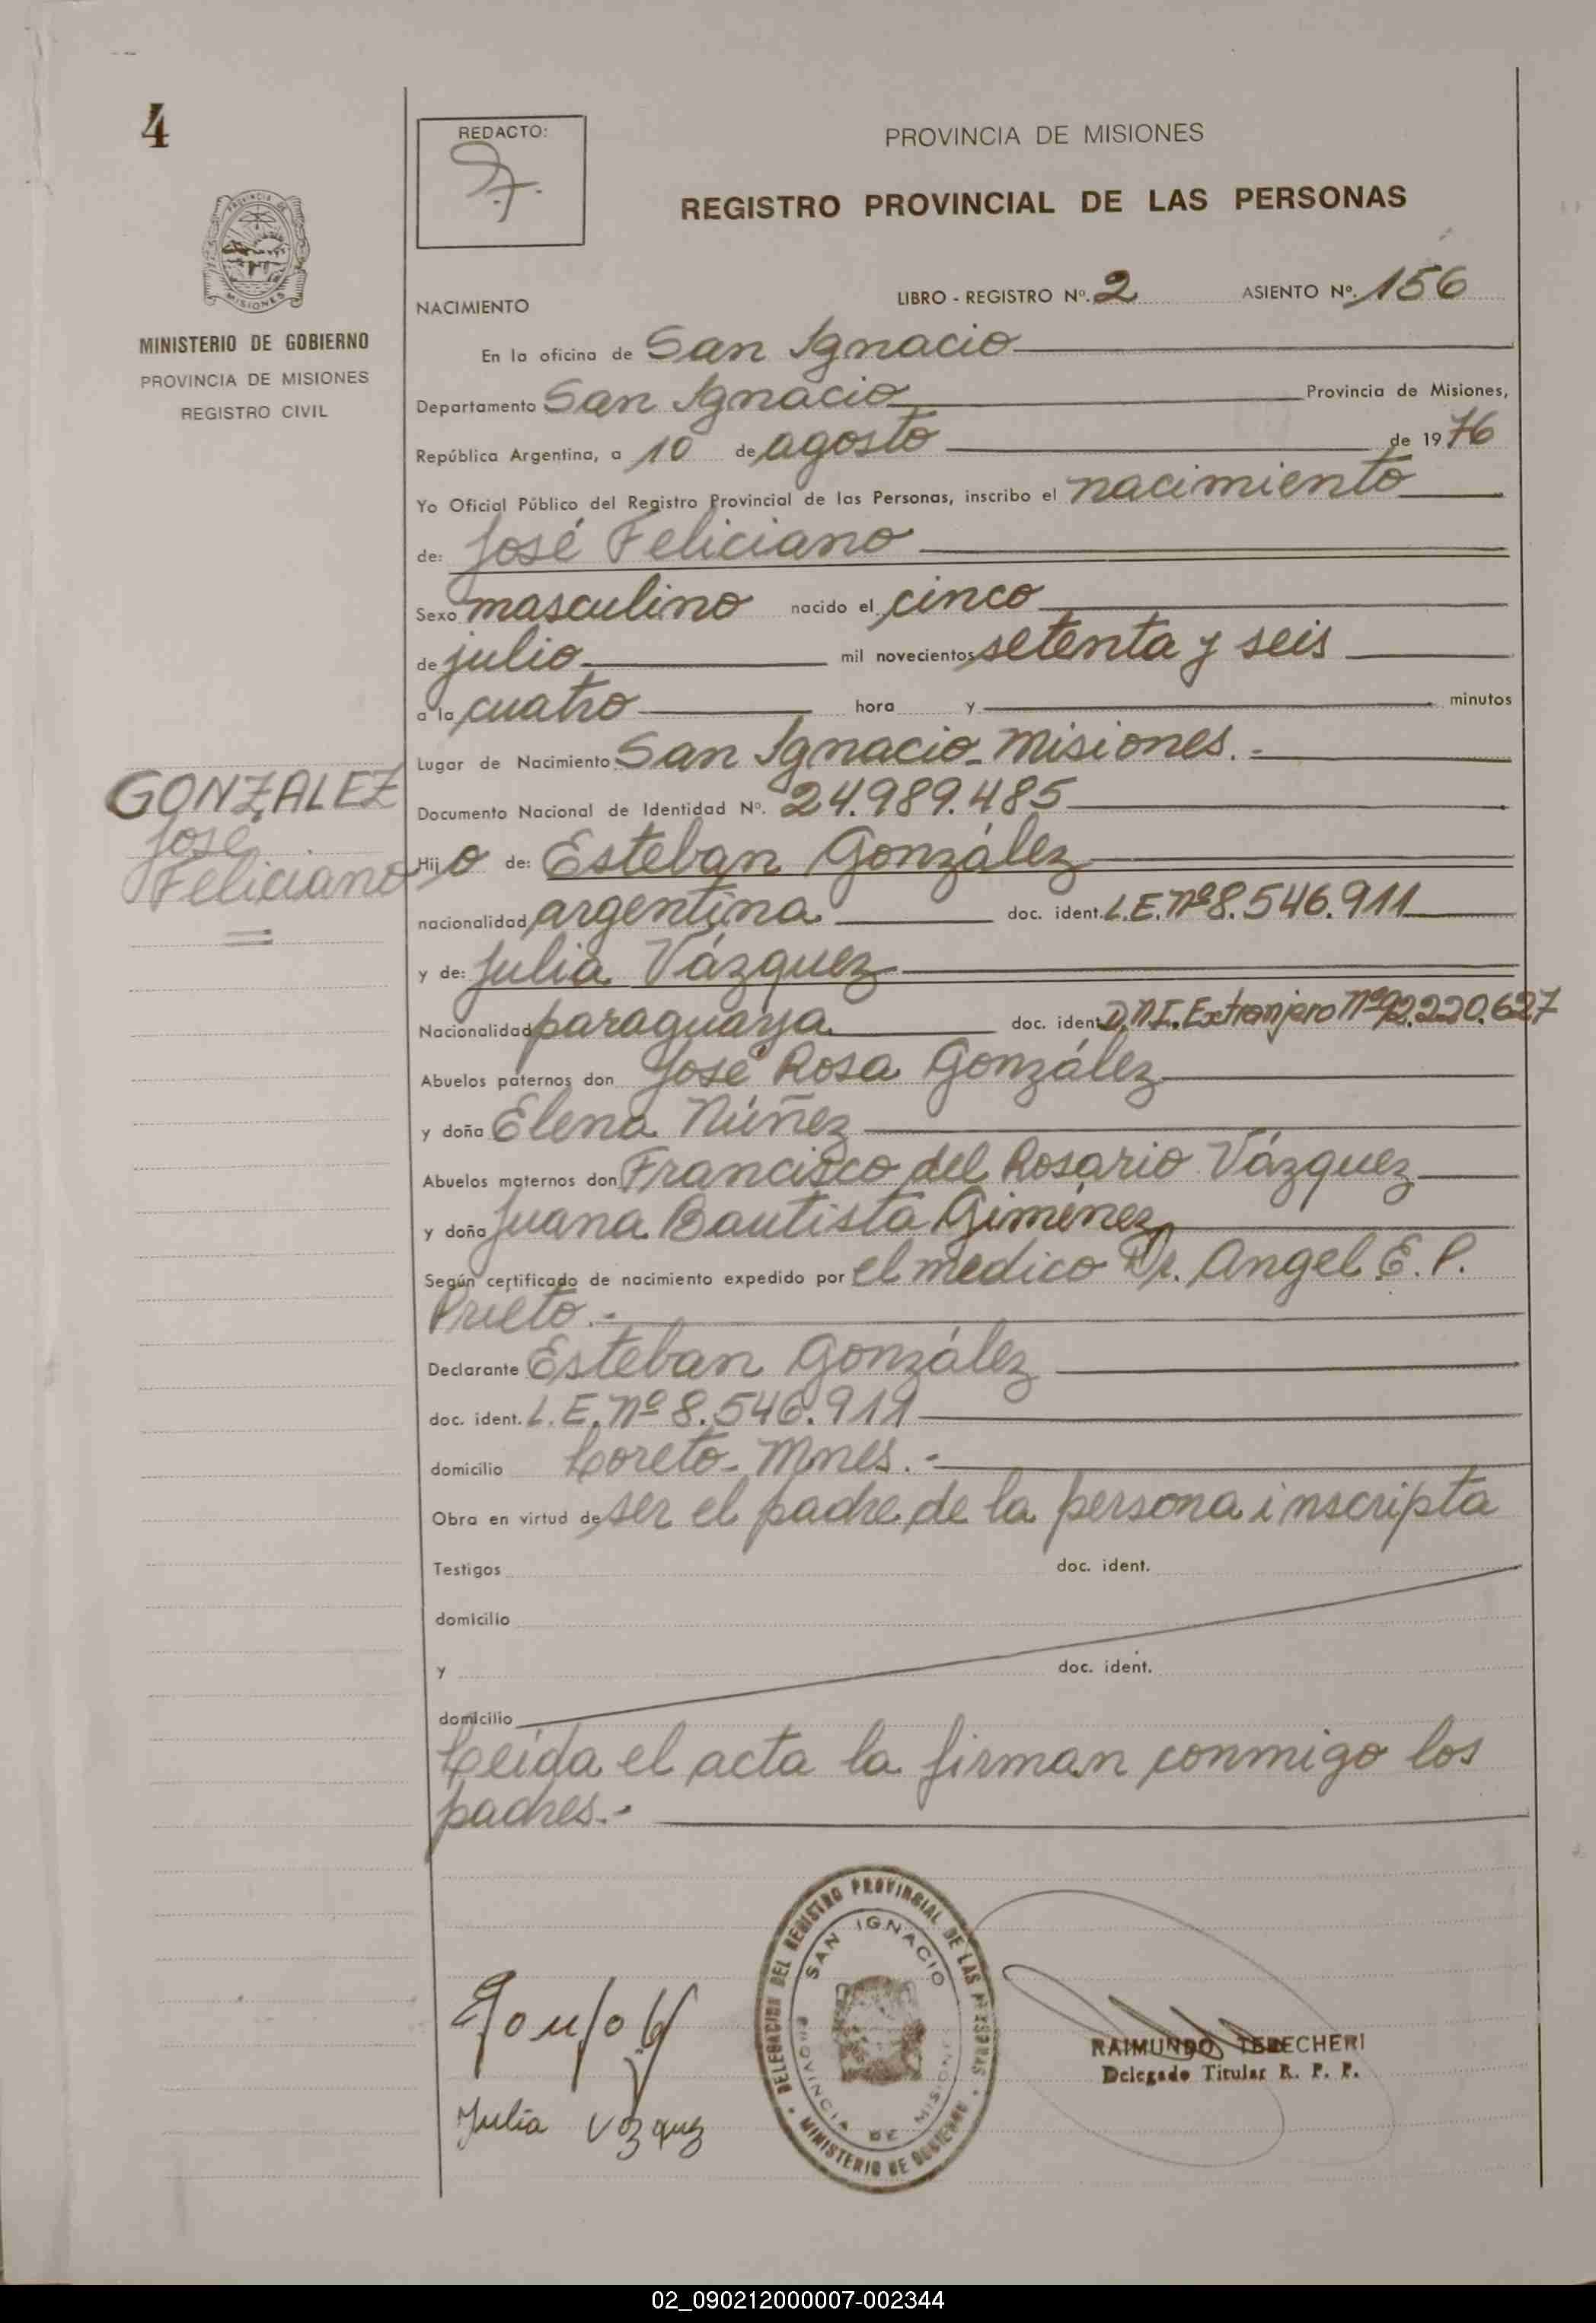 4
REDACTO:
PROVINCIA DE MISIONES
REGISTRO PROVINCIAL DE LAS PERSONAS
MISIONES
MINISTERIO DE GOBIERNO
PROVINCIA DE MISIONES
REGISTRO CIVIL
NACIMIENTO LIBRO - REGISTRO Nº. 2 ASIENTO Nº. 156
En la oficina de San Ignacio
Departamento San Ignacio Provincia de Misiones,
República Argentina, a 10 de agosto de 1976
Yo Oficial Público del Registro Provincial de las Personas, inscribo el nacimiento
de: José Feliciano
Sexo masculino nacido el cinco
de julio mil novecientos setenta y seis
a la cuatro hora y minutos
Lugar de Nacimiento San Ignacio - Misiones.-
GONZALEZ
José
Feliciano
Documento Nacional de Identidad Nº. 24.989.485
Hijo de: Esteban González
nacionalidad argentina doc. ident. L.E. Nº 8.546.911
y de: Julia Vázquez
Nacionalidad paraguaya doc. ident D.N.I. Extranjero Nº 92.220.627
Abuelos paternos don José Rosa González
y doña Elena Núñez
Abuelos maternos don Francisco del Rosario Vázquez
y doña Juana Bautista Giménez
Según certificado de nacimiento expedido por el médico Dr. Angel E. P.
Prieto.-
Declarante Esteban González
doc. ident. L.E. Nº 8.546.911
domicilio Loreto - Mnes.-
Obra en virtud de ser el padre de la persona inscripta
Testigos doc. ident.
domicilio
y doc. ident.
domicilio
Leída el acta la firman conmigo los
padres.-
DELEGACION DEL REGISTRO PROVINCIAL DE LAS PERSONAS
SAN IGNACIO
PROVINCIA DE MISIONES
MINISTERIO DE GOBIERNO
Julia Vozquez
RAIMUNDO TERECHERI
Delegado Titular R. P. P.
02_090212000007-002344